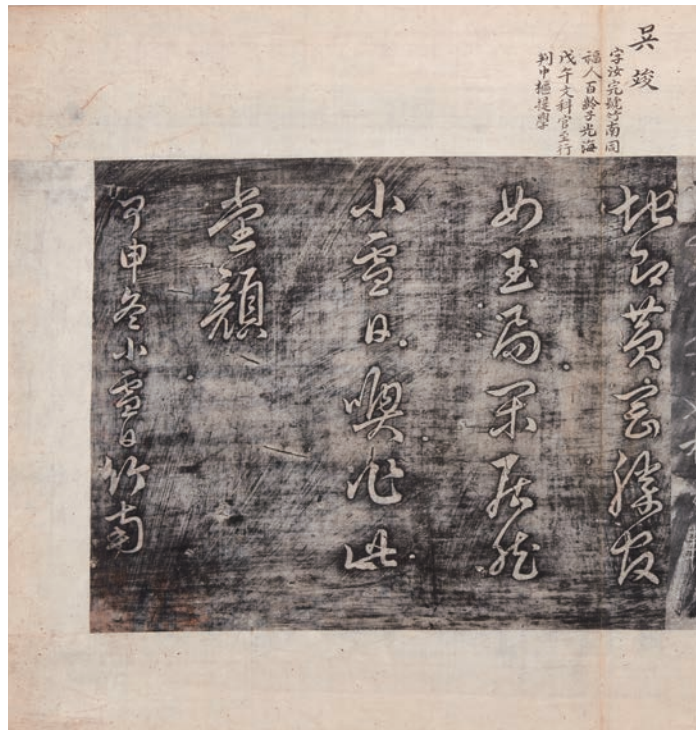 吳竣
字汝完號竹南同
福人百齡子光海
戊午文科官至行
判中樞提學
地即黃岡勝友
如玉局閑居然
小雪日喚作此
堂顔
甲申冬小雪日竹南